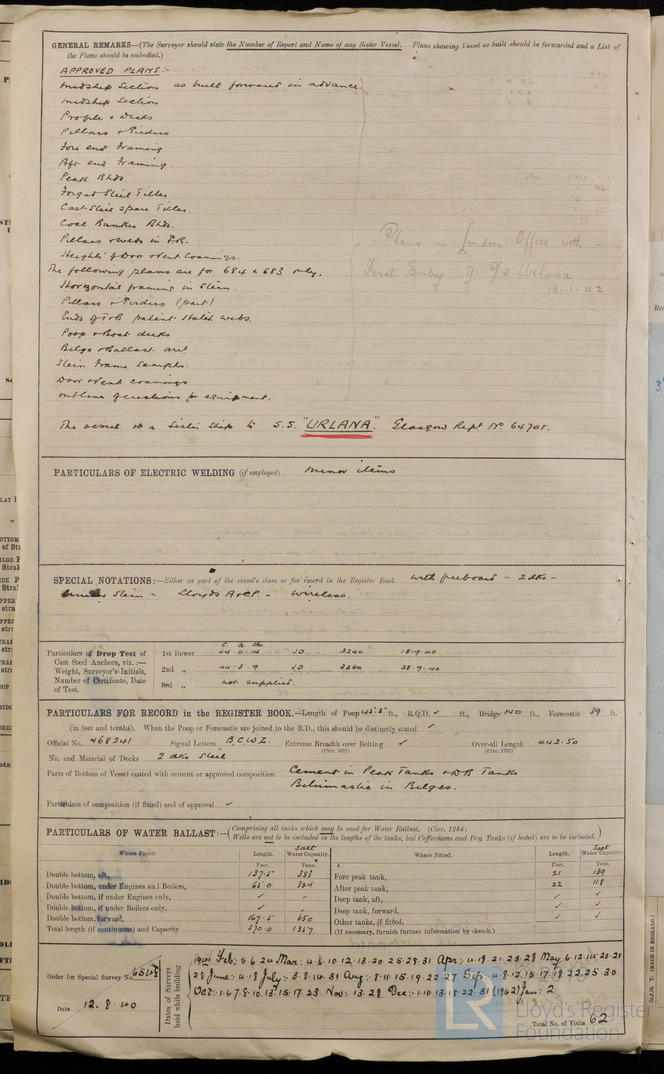 GENERAL REMARKS—(The Surveyor should state the Number of Report and Name of any Sister Vessel. Plans showing Vessel as built should be forwarded and a List of
the Plans should be embodied.)
APPROVED PLANS:-
Midship Section as built forward in advance.
Midship Section
Profile & Decks
Pillars & Girders
Fore end Framing
Aft end Framing
Peak Blds.
Forged Steel Tiller
Cast Steel spare Tiller.
Coal Bunker Blds.
Pillars & webs in E.R.
Heights of Door & Vent Coamings.
Plans in London Office with
The following plans are for 684 & 683 only.
First Entry of S/S Urlana
Horizontal framing in Stem.
13.1.42
Pillars & Girders (part)
Ends of patent hatch webs.
Poop & Boat decks
Bilge & Ballast arrt
Stern Frame Scarphs.
Door & Vent coamings
outline of erections for equipment.
The vessel is a Sister Ship to S.S. "URLANA." Glasgow Rept. No. 64705.
PARTICULARS OF ELECTRIC WELDING (if employed) Minor items
SPECIAL NOTATIONS:—Either as part of the vessel's class or for record in the Register Book with freeboard - 2 dks -
Stem - Lloyds A & CP. - Wireless.
Particulars of Drop Test of
Cast Steel Anchors, viz.:—
Weight, Surveyor's Initials,
Number of Certificate, Date
of Test.
C. Q. lbs.
1st Bower 44.0.14 JD 3240 18-9-40
2nd „ 44.3.9 JD 3260 28.9.40
3rd „ not supplied.
PARTICULARS FOR RECORD in the REGISTER BOOK.—Length of Poop 42.5 ft., R.Q.D. ✓ ft., Bridge 140 ft., Forecastle 39 ft.
(in feet and tenths). When the Poop or Forecastle are joined to the B.D., this should be distinctly stated ✓
Official No. 168341 Signal Letters B.C.W.L. Extreme Breadth over Belting ✓ Over-all Length 442.50
(Circ. 1611) (Circ. 1703)
No. and Material of Decks 2 dks Steel
Parts of Bottom of Vessel coated with cement or approved composition Cement in Peak Tanks & D.B Tanks
Bitumastic in Bilges.
Particulars of composition (if fitted) and of approval ✓
PARTICULARS OF WATER BALLAST:—(Comprising all tanks which may be used for Water Ballast, (Circ. 1284)
Wells are not to be included in the lengths of the tanks, but Cofferdams and Dry Tanks (if tested) are to be included.)
Where Fitted. Length. Salt Water Capacity. Where Fitted. Length. Salt Water Capacity.
Feet. Tons. Feet. Tons.
Double bottom, aft, 137.5 383 Fore peak tank, 21 139
Double bottom, under Engines and Boilers, 65.0 324 After peak tank, 22 118
Double bottom, if under Engines only, ✓ ✓ Deep tank, aft, ✓ ✓
Double bottom, if under Boilers only, ✓ Deep tank, forward, ✓ ✓
Double bottom, forward, 167.5 650 Other tanks, if fitted, ✓ ✓
Total length (if continuous) and Capacity 370.0 1357 (If necessary, furnish further information by sketch.)
Order for Special Survey No. 6548
Date 12.8.40
Dates of Surveys held while building
1941 Feb: 5.6.20 Mar: 4.6.10.12.13.20.25.29.31 Apr: 4.18.21.23.28 May 6.12.14.20.21
28 June: 4.18 July: 3.8.14.31 Aug: 8.11.15.19.22.27 Sep: 4.8.12.15.17.18.22.25.30
Oct: 1.6.7.8.10.13.15.17.23 Nov: 13.28 Dec: 1.10.13.18.22.31 (1942) Jan: 2
Total No. of Visits 62
LR
Lloyd's Register
Foundation